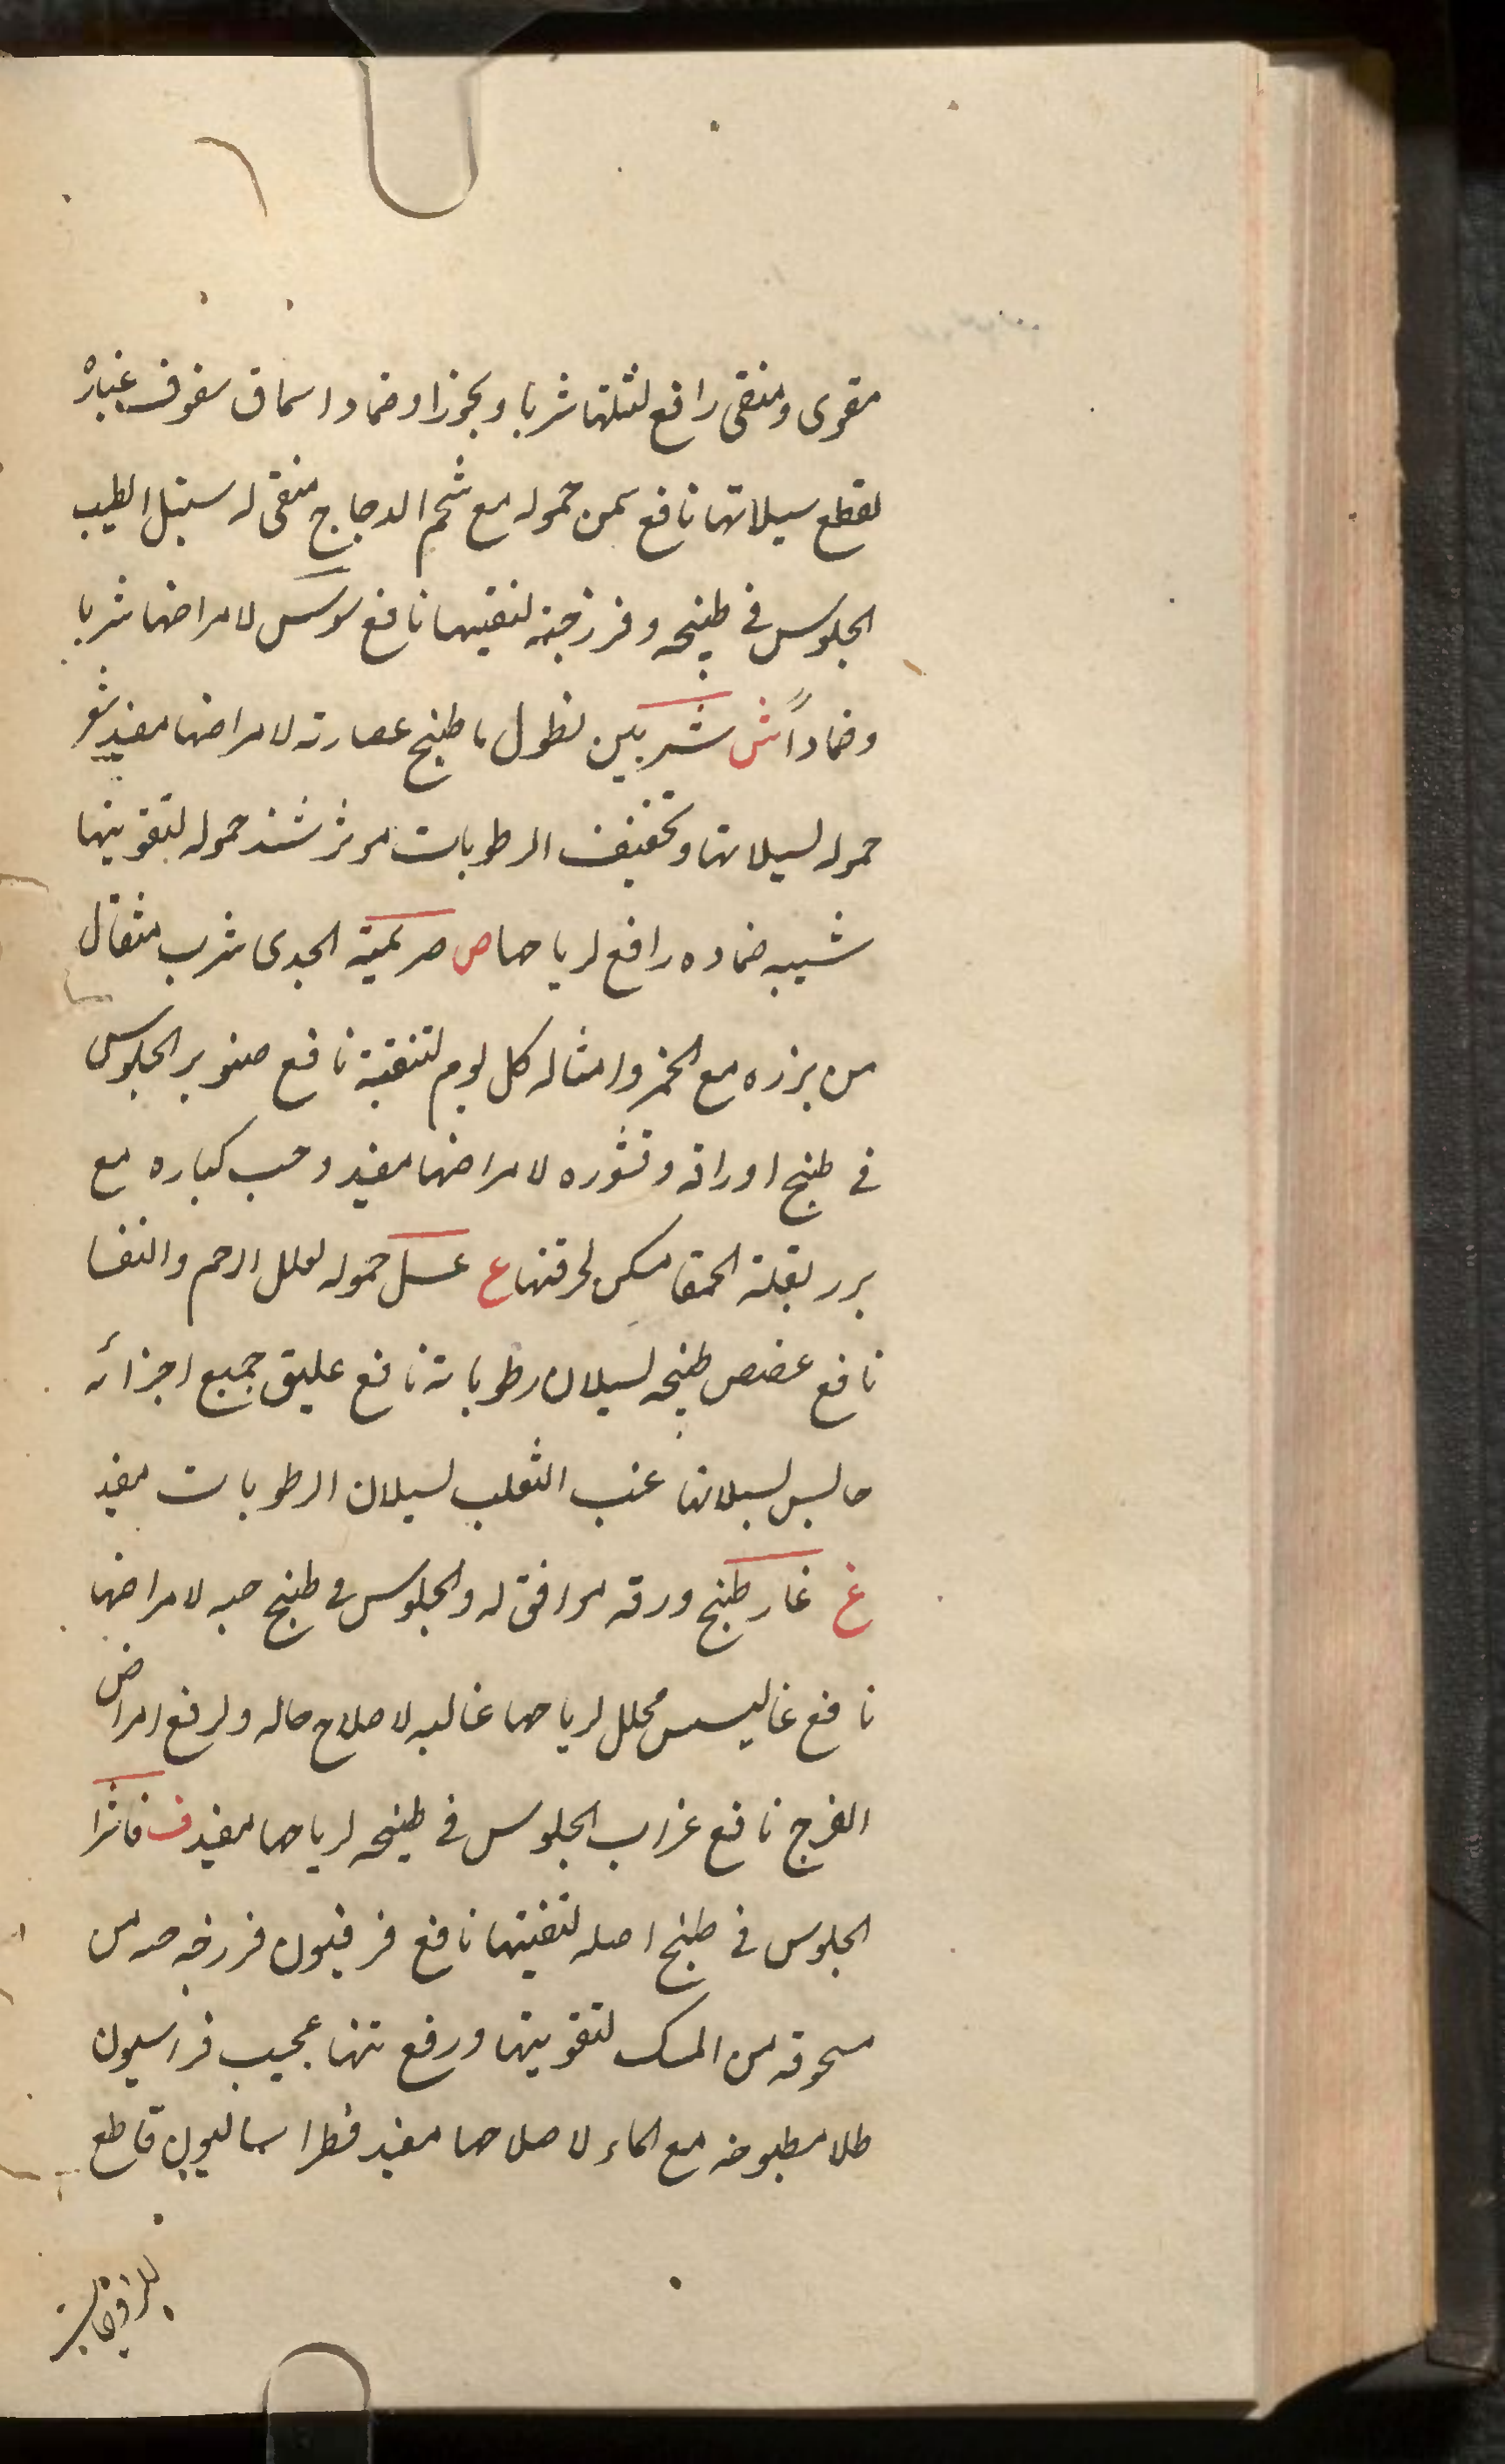 مقوى ومنقى رافع لثلتها شربا وبخورا وضمادا سماق سفوف غباره
لقطع سيلانها نافع سمن حموله مع شحم الدجاج منقى له سنبل الطيب
الجلوس فى طبيخه وفرزجته لتقيتها نافع سوس لامراضها شربا
وضماداً ش شربين نطول ما طبخ عصارته لامراضها مفيد شعر
حموله لسيلانها وتخفيف الرطوبات موثر شند حموله لتقويتها
شيبه ضماده رافع لرياحها ص صريمية الجدى شرب مثقال
من بزره مع الخمر وامثاله كل يوم لتنقية نافع صنوبر الجلوس
فى طبخ اوراقه وقشوره لامراضها مفيد وحب كباره مع
بزر بقلة الحمقا مسكن لحرقتها ع عسل حموله لعلل الرحم والنفسا
نافع عفص طبيخه لسيلان رطوباته نافع عليق جميع اجزائه
حابس لسيلانها عنب الثعلب لسيلان الرطوبات مفيد
غ غار طبخ ورقه موافق له والجلوس فى طبخ حبه لامراضها
نافع غاليسس محلل لرياحها غاليه لاصلاح حاله ولرفع امراض
الفرج نافع غراب الجلوس فى طبيخه لرياحها مفيد ف فاشرا
الجلوس فى طبخ اصله لتقيتها نافع فرفيون فرزجه منه من
مسحوقه من المسك لتقويتها ورفع نتنها عجيب فراسيون
طلا مطبوخه مع الماء لاصلاحها مفيد فطراساليون قاطع